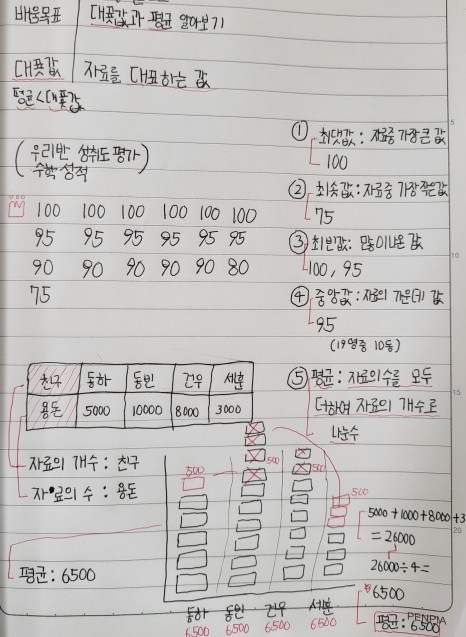 배움목표 대푯값과 평균 알아보기
대푯값 자료를 대표하는 값
평균<대푯값
(우리반 성취도 평가)
수학 성적
100 100 100 100 100 100
95 95 95 95 95 95
90 90 90 90 90 80
75
① 최댓값: 자료중 가장 큰 값
100
② 최솟값: 자료중 가장 작은 값
75
③ 최빈값: 많이 나온 값
100, 95
④ 중앙값: 자료의 가운데 값
95
(19명중 10등)
친구 동하 동빈 건우 세훈
용돈 5000 10000 8000 3000
자료의 개수: 친구
자료의 수: 용돈
평균: 6500
⑤ 평균: 자료의 수를 모두
더하여 자료의 개수로
나눈 수
500 500 500 500
5000+1000+8000+3
=26000
26000÷4=
6500
평균: 6500
동하 동빈 건우 세훈
6500 6500 6500 6500
5
10
15
20
PENPIA